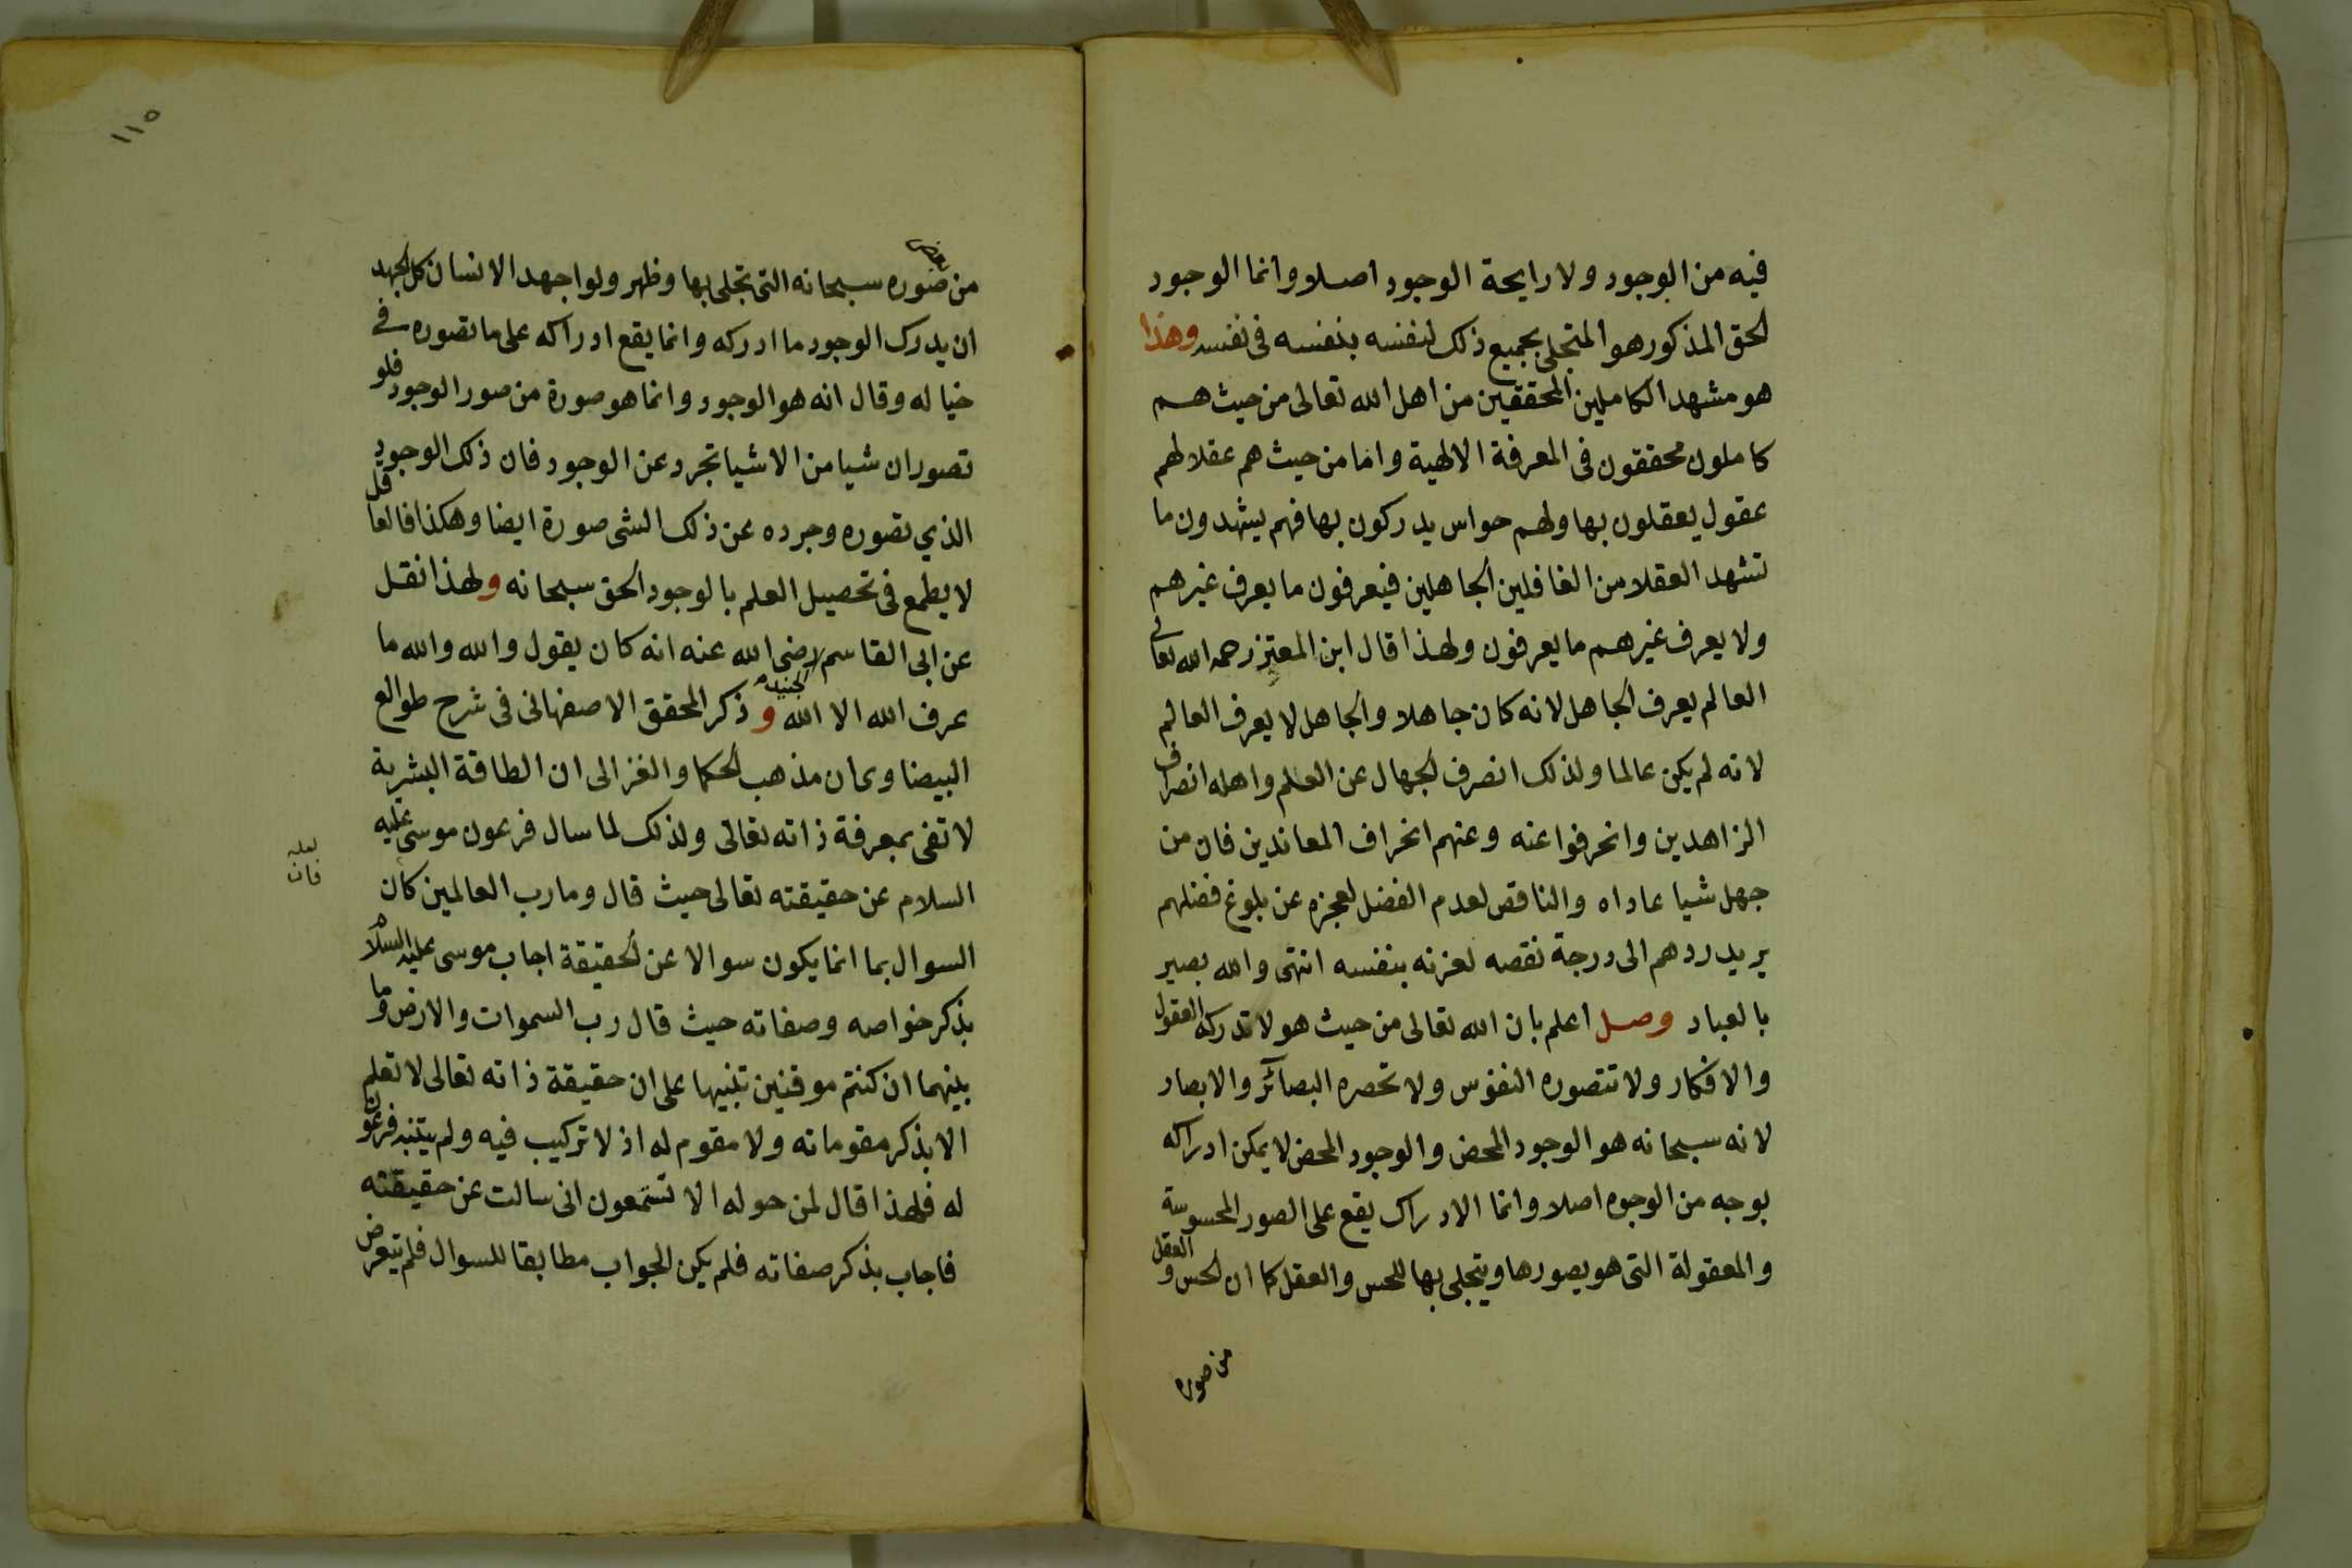 فيه من الوجود ولا رايحة الوجود اصلا وانما الوجود
الحق المذكور هو المتجلى بجميع ذلك لنفسه بنفسه فى نفسه وهذا
هو مشهد الكاملين المحققين من اهل الله تعالى من حيث هم
كاملون محققون فى المعرفة الالهية واما من حيث هم عقلا لهم
عقول يعقلون بها ولهم حواس يدركون بها فهم يشهدون ما
تشهد العقلا من الغافلين الجاهلين فيعرفون ما يعرف غيرهم
ولا يعرف غيرهم ما يعرفون ولهذا قال ابن المعتز رحمه الله تعالى
العالم يعرف الجاهل لانه كان جاهلا والجاهل لا يعرف العالم
لانه لم يكن عالما ولذلك انصرف الجهال عن العلم واهله انصراف
الزاهدين وانحرفوا عنه وعنهم انحراف المعاندين فان من
جهل شيا عاداه والناقص لعدم الفضل لعجزه عن بلوغ فضلهم
يريد ردهم الى درجة نقصه لعزته بنفسه انتهى والله بصير
بالعباد وصل اعلم بان الله تعالى من حيث هو لا تدركه العقول
والافكار ولا تتصوره النفوس ولا تحصره البصائر والابصار
لانه سبحانه هو الوجود المحض والوجود المحض لا يمكن ادراكه
بوجه من الوجوه اصلا وانما الادراك يقع على الصور المحسوسة
والمعقولة التى هو يصورها ويتجلى بها للحس والعقل كما ان الحس والعقل
من صوره
١١٥
بعض
من صوره سبحانه التى تجلى بها وظهر ولو اجهد الانسان كل الجهد
ان يدرك الوجود ما ادركه وانما يقع ادراكه على ما تصوره فى
خياله وقال انه هو الوجود وانما هو صورة من صور الوجود فلو
تصور ان شيا من الاشيا تجرد عن الوجود فان ذلك الوجود
الذي تصوره وجرده عن ذلك الشى صورة ايضا وهكذا فالعاقل
لا يطمع فى تحصيل العلم بالوجود الحق سبحانه ولهذا نقل
عن ابى القاسم الجنيد رضى الله عنه انه كان يقول والله والله ما
عرف الله الا الله وذكر المحقق الاصفهانى فى شرح طوالع
البيضاوى ان مذهب الحكما والغزالى ان الطاقة البشرية
لا تفى بمعرفة ذاته تعالى ولذلك لما سال فرعون موسى عليه
السلام عن حقيقته تعالى حيث قال وما رب العالمين كان
لعله
فان
السوال بما انما يكون سوالا عن الحقيقة اجاب موسى عليه السلام
بذكر خواصه وصفاته حيث قال رب السموات والارض وما
بينهما ان كنتم موقنين تنبيها على ان حقيقة ذاته تعالى لا تعلم
الا بذكر مقوماته ولا مقوم له اذ لا تركيب فيه ولم يتنبه فرعون
له فلهذا قال لمن حوله الا تستمعون انى سالت عن حقيقته
فاجاب بذكر صفاته فلم يكن الجواب مطابقا للسوال فلم يتعرض